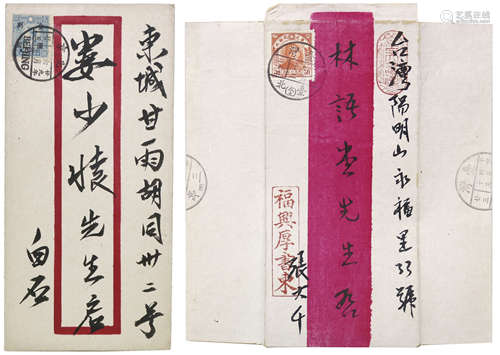 東城甘雨胡同卅二号
婁少懷先生启
白石
BEIJING
台灣陽明山永福里
號
林語堂先生
張大千
福興厚書柬